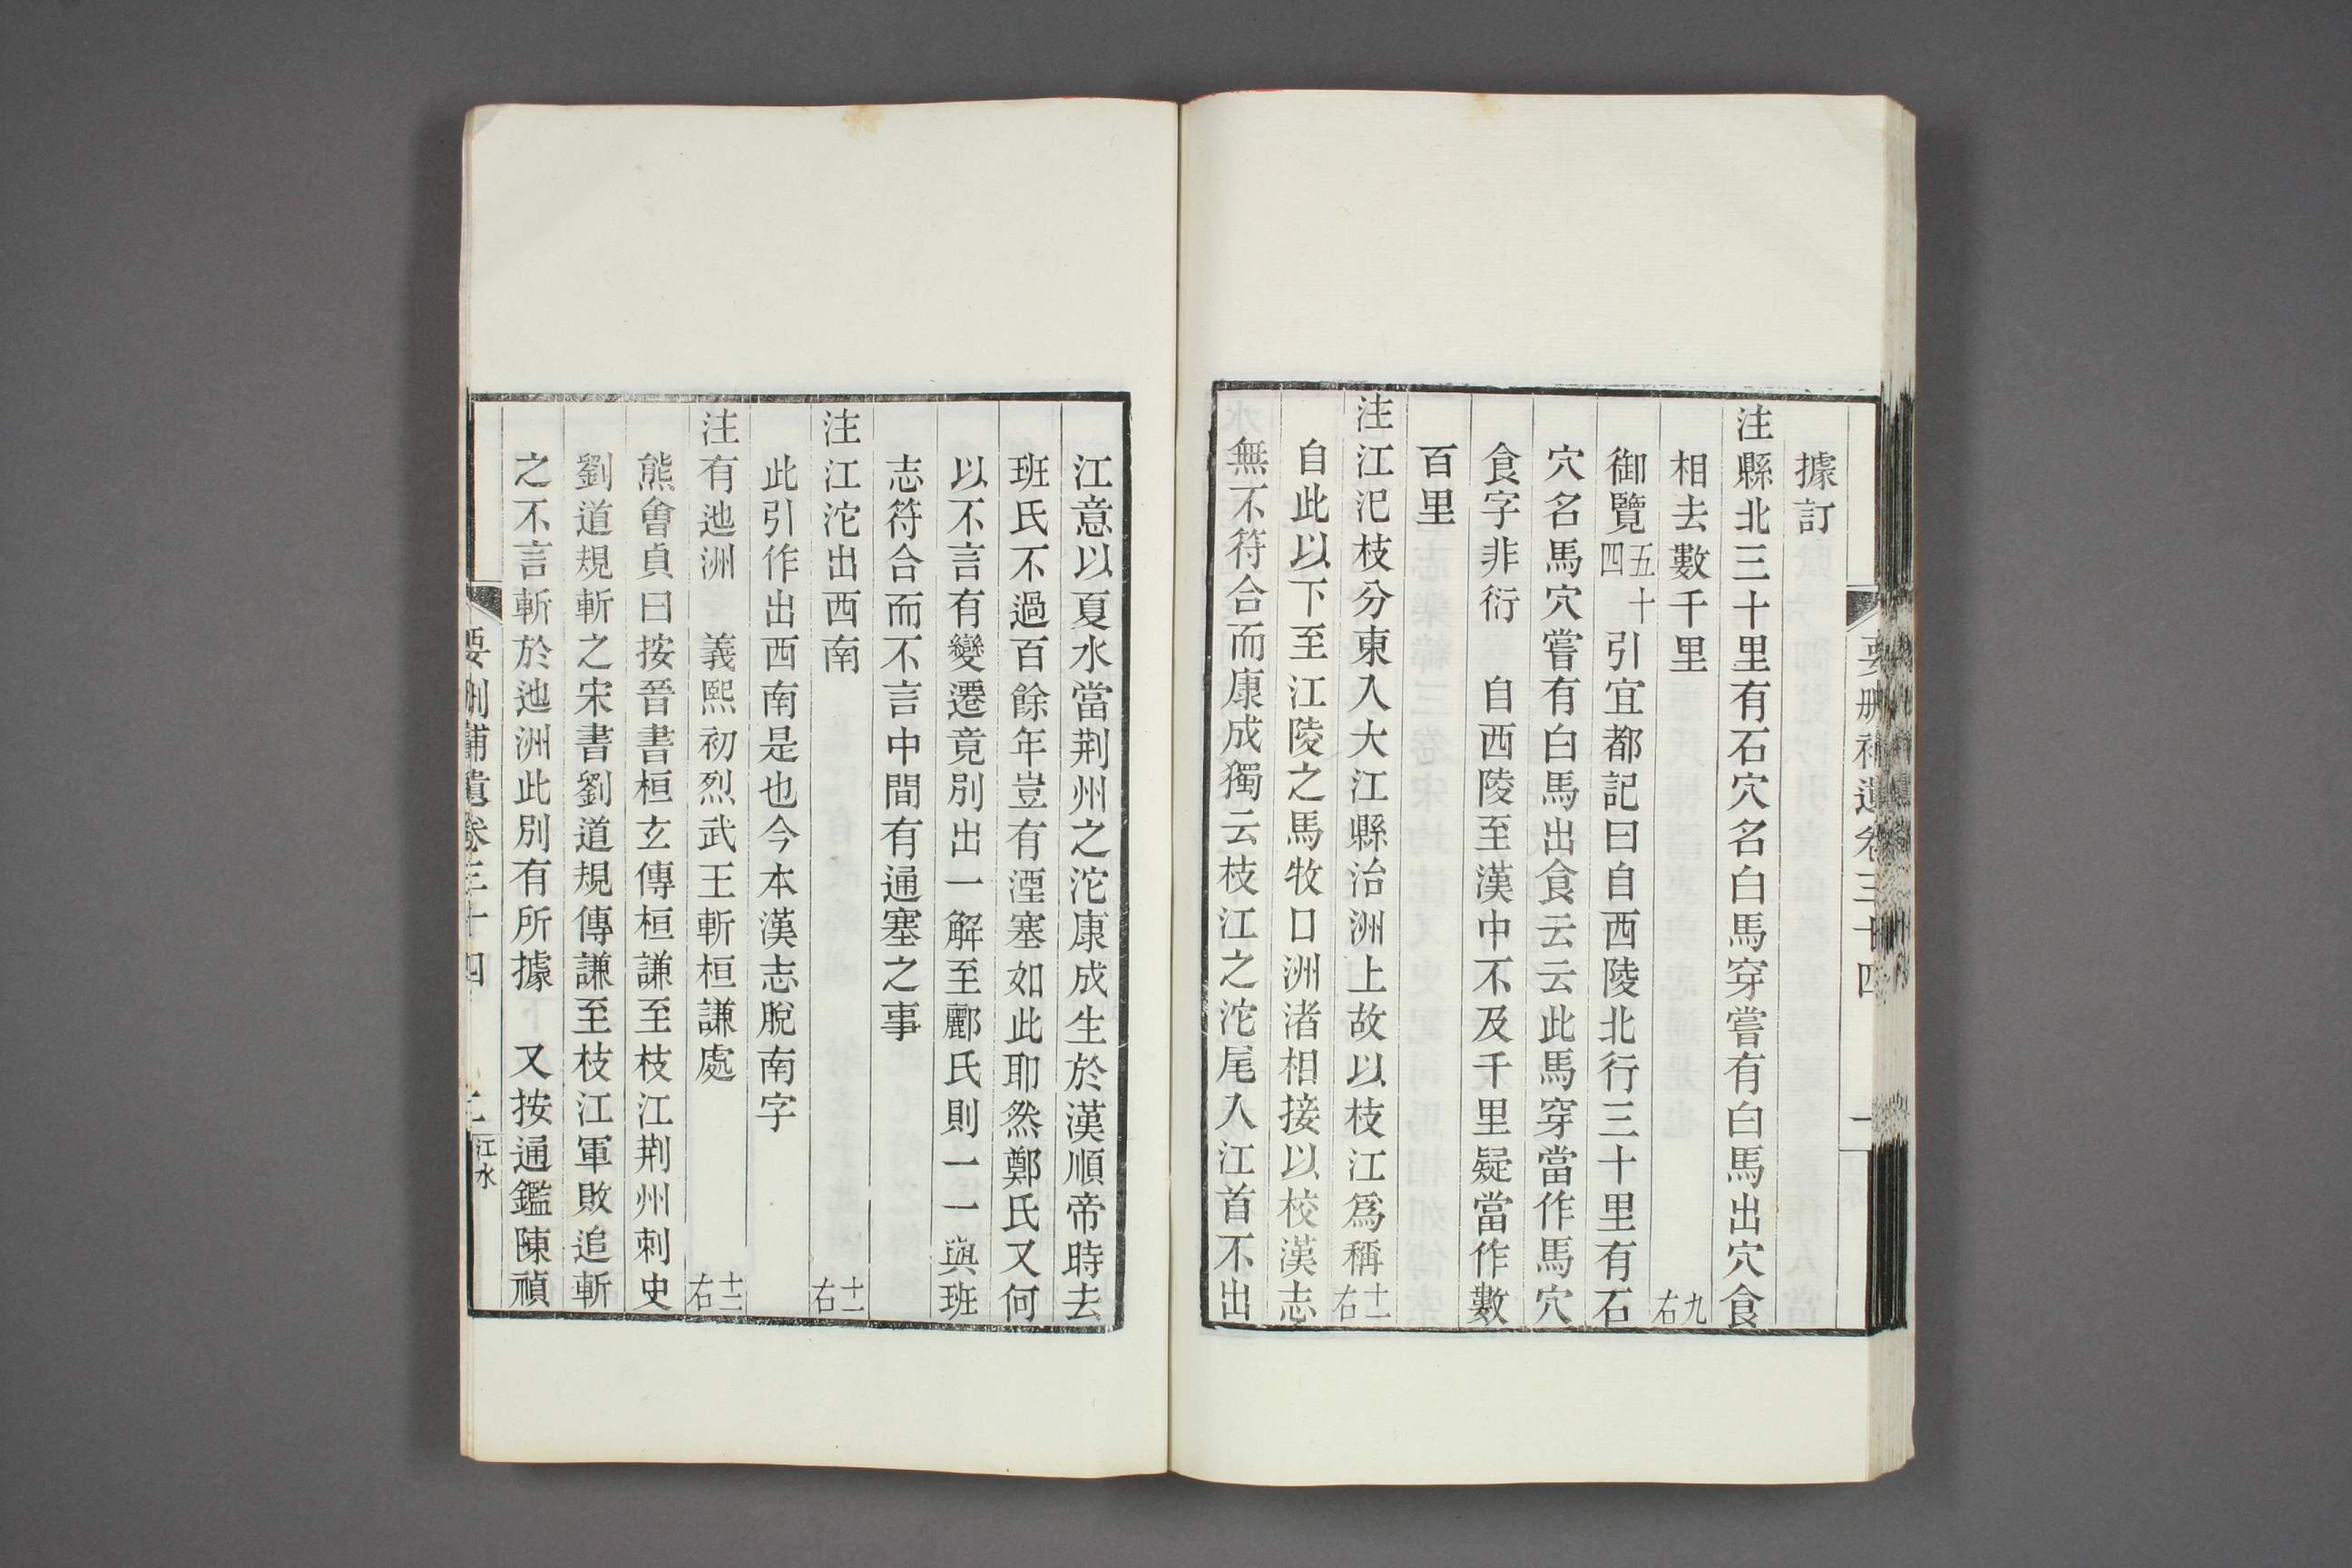 要刪補遺卷三十四
一
據訂
注縣北三十里有石穴名白馬穿嘗有白馬出穴食
相去數千里 九右
御覽五十四引宜都記曰自西陵北行三十里有石
穴名馬穴嘗有白馬出食云云此馬穿當作馬穴
食字非衍 自西陵至漢中不及千里疑當作數
百里
注江汜枝分東入大江縣治洲上故以枝江爲稱 十一右
自此以下至江陵之馬牧口洲渚相接以校漢志
無不符合而康成獨云枝江之沱尾入江首不出
江意以夏水當荆州之沱康成生於漢順帝時去
班氏不過百餘年豈有湮塞如此耶然鄭氏又何
以不言有變遷竟別出一解至酈氏則一一與班
志符合而不言中間有通塞之事
注江沱出西南 十一右
此引作出西南是也今本漢志脫南字
注有迆洲 義熙初烈武王斬桓謙處 十二右
熊會貞曰按晉書桓玄傳桓謙至枝江荆州刺史
劉道規斬之宋書劉道規傳謙至枝江軍敗追斬
之不言斬於迆洲此別有所據 又按通鑑陳禎
要刪補遺卷三十四
二
江水